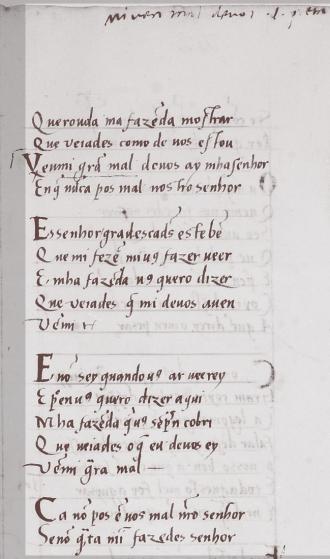 Querouda ma fazēda mostrar
Que ueiades como de uos estou
Veumi grā mal deuos ay mhasenhor
Enq̄ nūca pos mal nostro senhor
Essenhor gradescads estebē
Que mi fezē miuꝯ fazer ueer
E mha fazēda uꝯ quero dizer
Que ueiades q̄ mi deuos auen
Vēm
E nō sey quando uꝯ ar ueerey
E pēnuꝯ quero dizer aqui
Mha fazēda q̄uꝯ
Que ueiades o q̄ eu deuos ey
Vēm g̃ra mal
Ca nō pos ē uos mal nr̄o senhor
Senō q̄ta mī fazedes senhor